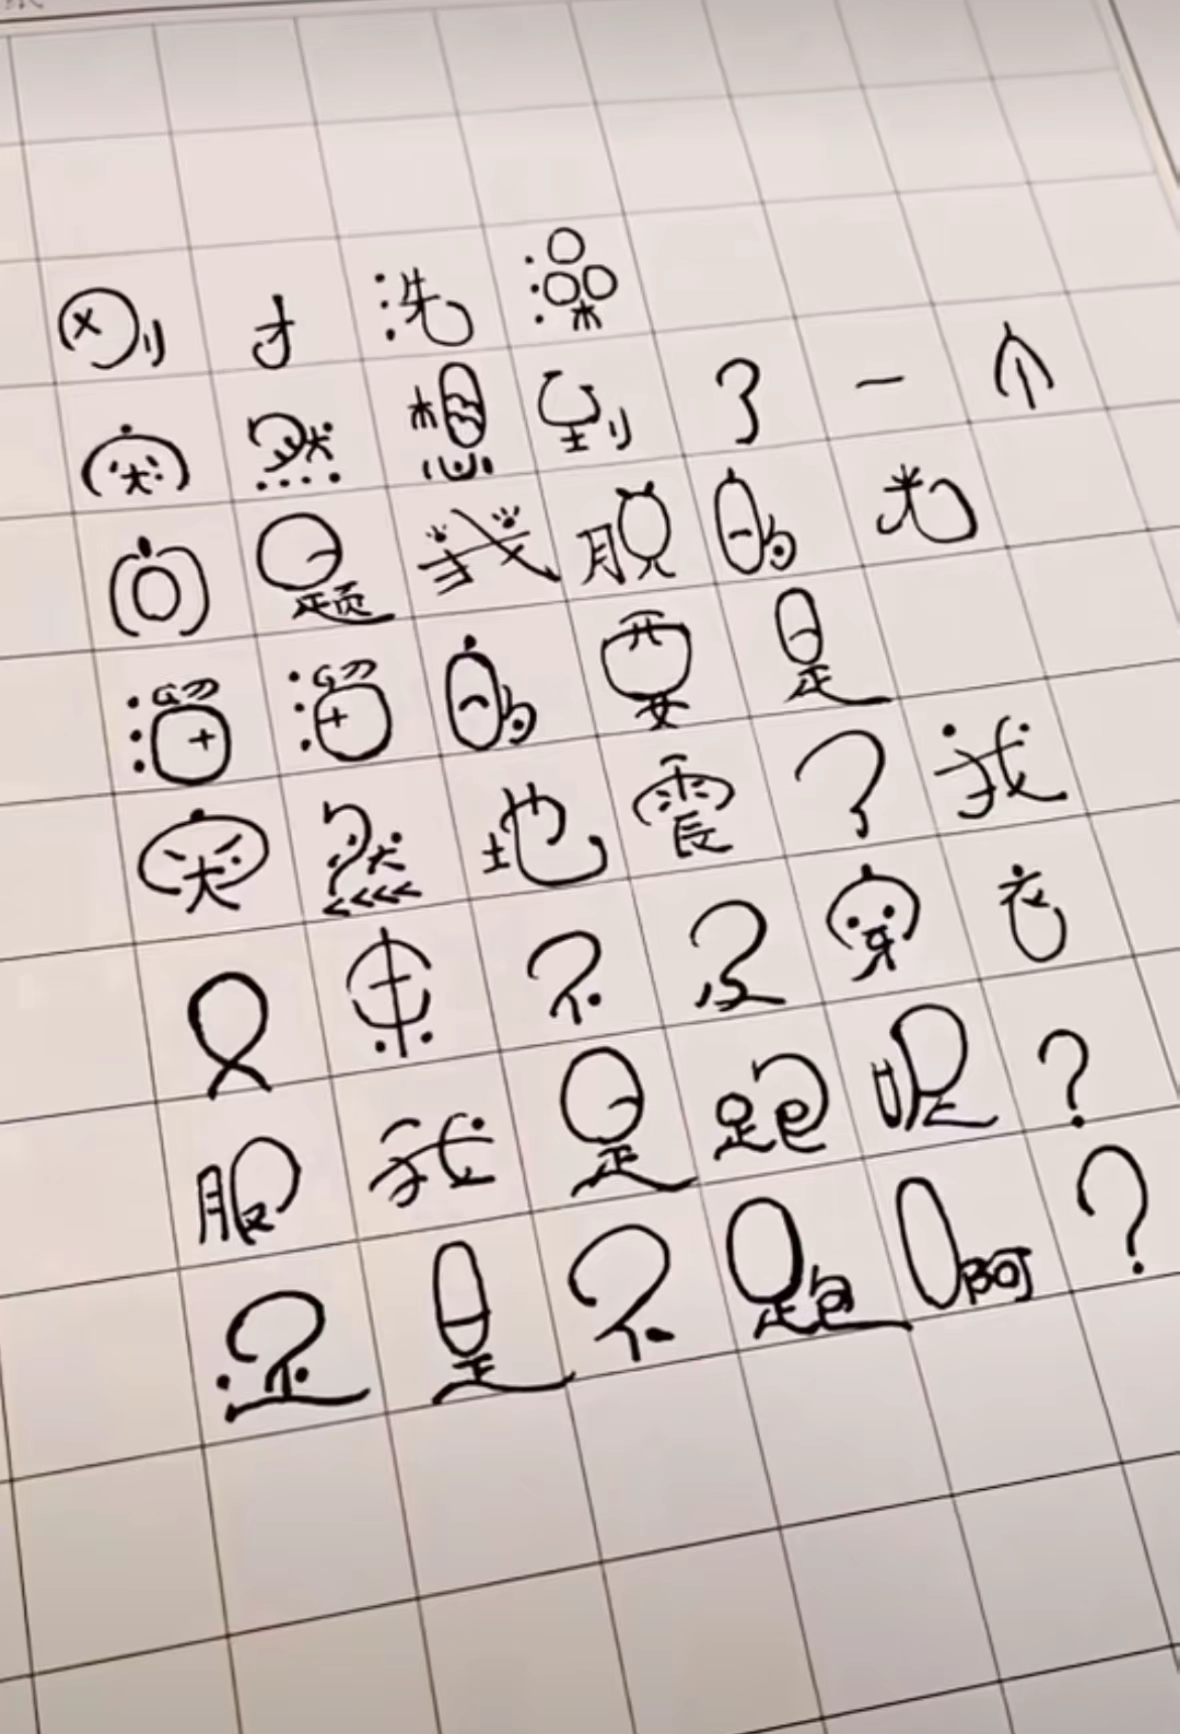 刚才洗澡
突然想到了一个
问题我脱的光
溜溜的要是
突然地震了我
又来不及穿衣
服我是跑呢?
还是不跑啊?